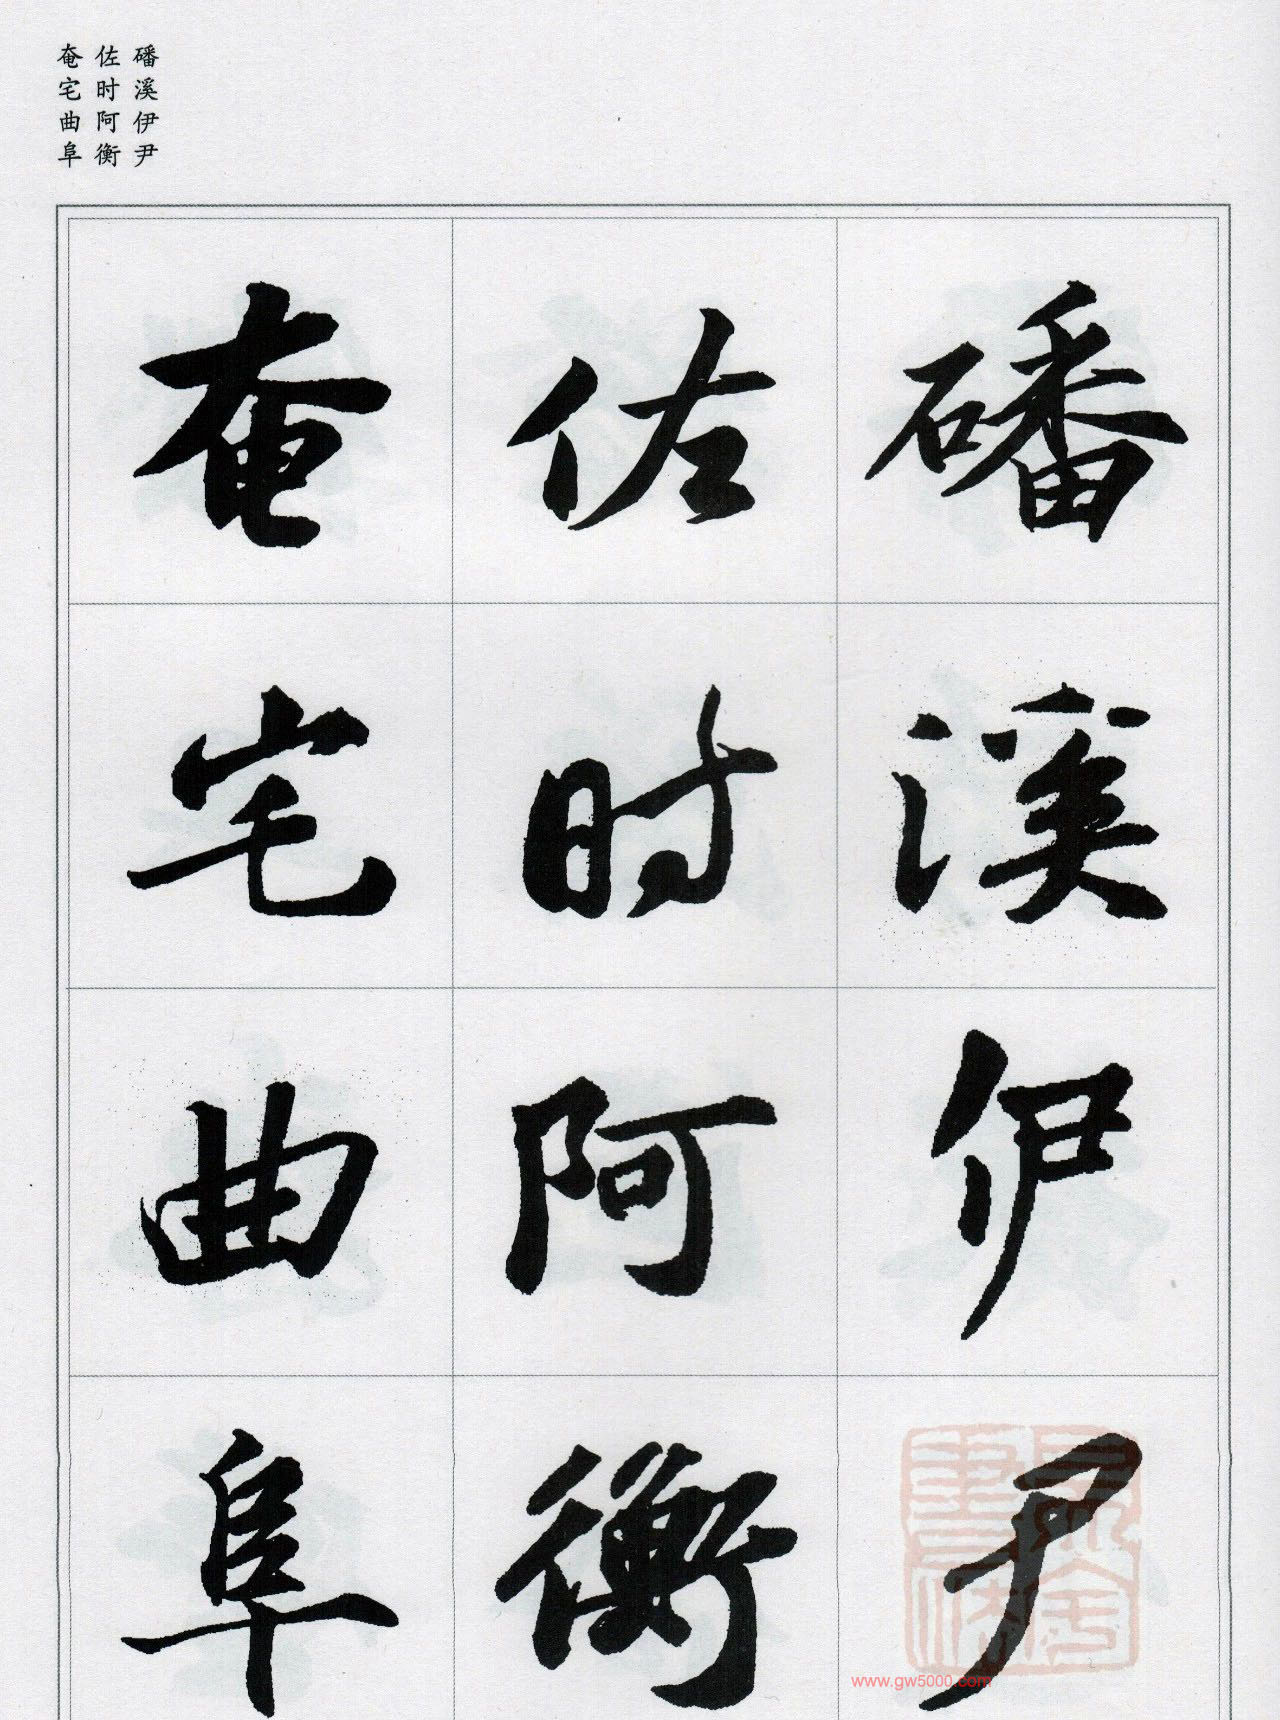 磻溪伊尹
佐时阿衡
奄宅曲阜
磻溪伊尹
佐时阿衡
奄宅曲阜
www.gw5000.com